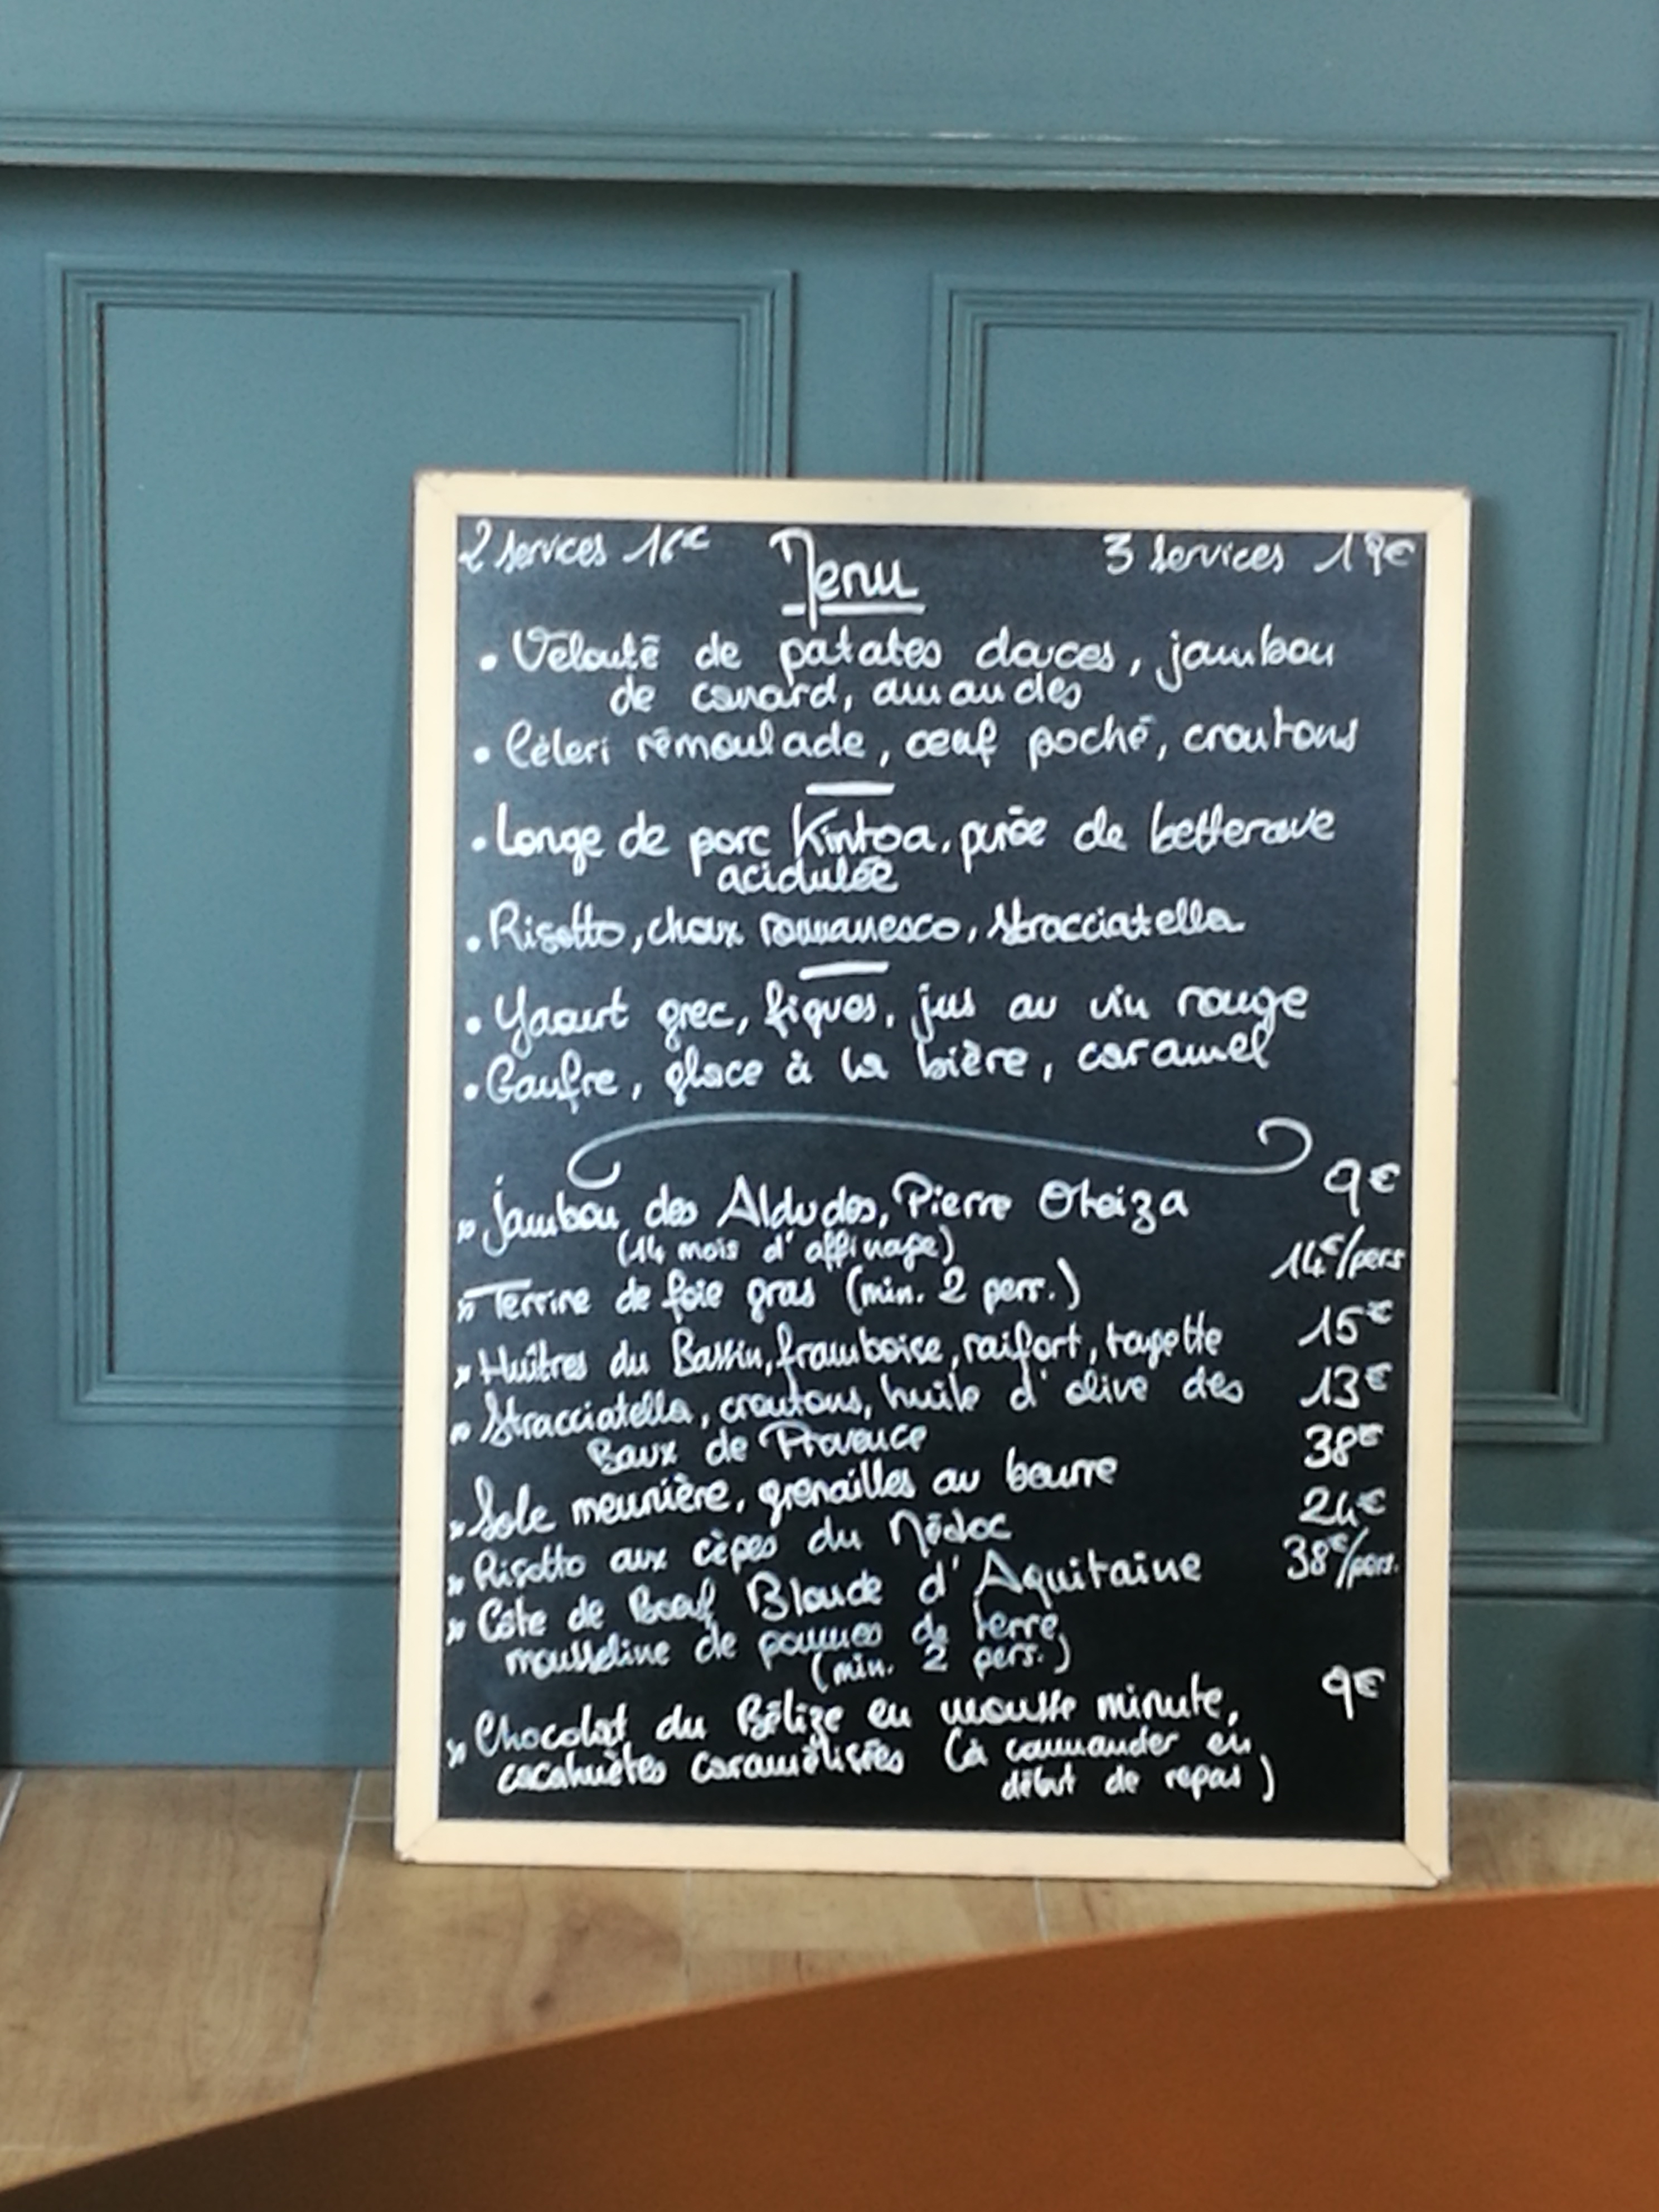 2 services 16€ Menu 3 services 19€
• Velouté de patates douces, jambon
de canard, amandes
• Céleri rémoulade, œuf poché, croutons
• Longe de porc Kintoa, purée de betterave
acidulée
• Risotto, choux romanesco, stracciatella
• Yaourt grec, figues, jus au vin rouge
• Gaufre, glace à la bière, caramel
» Jambon des Aldudes, Pierre Oteiza 9€
(14 mois d'affinage)
» Terrine de foie gras (min. 2 pers.) 14€/pers
» Huîtres du Bassin, framboise, raifort, 15€
» Stracciatella, croutons, huile d'olive des 13€
Baux de Provence
» Sole meunière, grenailles au beurre 38€
» Risotto aux cèpes du Médoc 24€
» Côte de Boeuf Blonde d'Aquitaine 38€/pers.
mousseline de pommes de terre
(min. 2 pers.)
» Chocolat du Bélize en mousse minute, 9€
cacahuètes caramélisées (à commander en
début de repas)